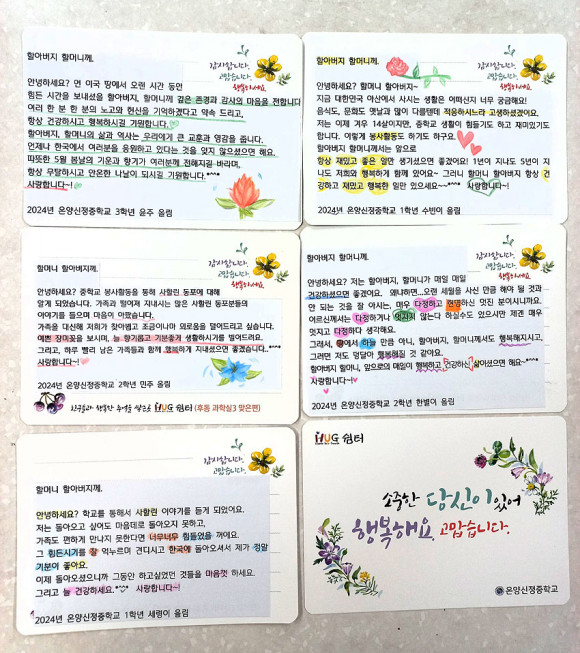 감사합니다.
고맙습니다.
행복하세요.
할아버지 할머니께.
안녕하세요? 먼 이국 땅에서 오랜 시간 동안
힘든 시간을 보내셨을 할아버지, 할머니께 깊은 존경과 감사의 마음을 전합니다
여러 한 분 한 분의 노고와 헌신을 기억하겠다고 약속 드리고,
항상 건강하시고 행복하시길 기원합니다.
할아버지, 할머니의 삶과 역사는 우리에게 큰 교훈과 영감을 줍니다.
언제나 한국에서 여러분을 응원하고 있다는 것을 잊지 않으셨으면 해요.
따뜻한 5월 봄날의 기운과 향기가 여러분께 전해지길 바라며,
항상 무탈하시고 안온한 나날이 되시길 기원합니다.*^^*
사랑합니다~!
2024년 온양신정중학교 3학년 윤주 올림
감사합니다.
고맙습니다.
행복하세요.
할아버지 할머니께.
안녕하세요? 할머니 할아버지~
지금 대한민국 아산에서 사시는 생활은 어떠신지 너무 궁금해요!
음식도, 문화도 옛날과 많이 다를텐데 적응하시느라 고생하셨겠어요.
저는 이제 겨우 14살이지만, 중학교 생활이 힘들기도 하고 재미있기도
합니다. 이렇게 봉사활동도 하기도 하구요.
할아버지 할머니께서는 앞으로
항상 재밌고 좋은 일만 생기셨으면 좋겠어요! 1년이 지나도 5년이 지
나도 저희와 행복하게 함께 있어요~ 그러니 할머니 할아버지 항상 건
강하고 재밌고 행복한 일만 있으세요~~*^^* 사랑합니다~!
2024년 온양신정중학교 1학년 수빈이 올림
감사합니다.
고맙습니다.
행복하세요.
할머니 할아버지께.
안녕하세요? 중학교 봉사활동을 통해 사할린 동포에 대해
알게 되었습니다. 가족과 떨어져 지내시는 많은 사할린 동포분들의
이야기를 들으며 마음이 아팠습니다.
가족을 대신해 저희가 찾아뵙고 조금이나마 외로움을 덜어드리고 싶습니다.
예쁜 장미꽃을 보시며, 늘 향기롭고 기분좋게 생활하시기를 빌어드려요.
그리고, 하루 빨리 남은 가족들과 함께 행복하게 지내셨으면 좋겠습니다.*^^*
사랑합니다~!
2024년 온양신정중학교 2학년 민주 올림
친구들과 행복한 추억을 쌓는곳 HUG 쉼터 (후동 과학실3 맞은편)
감사합니다.
고맙습니다.
행복하세요.
할아버지 할머니께.
안녕하세요? 저는 할아버지, 할머니가 매일 매일
건강하셨으면 좋겠어요. 왜냐하면, 오랜 세월을 사신 만큼 해야 될 것과
안 되는 것을 잘 아시는, 매우 다정하고 현명하신 멋진 분이시니까요.
어르신께서는 다정하거나 멋지지 않는다 하실수도 있으시만 제겐 매우
멋지고 다정하다 생각해요.
그래서, 땅에서 하늘 만큼 아니, 할아버지, 할머니께서도 행복해지시고,
그러면 저도 덩달아 행복해질 것 같아요.
할아버지 할머니, 앞으로의 매일이 행복하고 건강하신 삶이셨으면 해요~*^^*
사랑합니다~!
2024년 온양신정중학교 2학년 한별이 올림
감사합니다.
고맙습니다.
할머니 할아버지께.
안녕하세요? 학교를 통해서 사할린 이야기를 듣게 되었어요.
저는 돌아오고 싶어도 마음데로 돌아오지 못하고,
가족도 편하게 만나지 못한다면 너무너무 힘들었을 꺼에요.
그 힘든시기를 잘 억누르며 견디시고 한국에 돌아오셔서 제가 정말
기분이 좋아요.
이제 돌아오셨으니까 그동안 하고싶었던 것들을 마음껏 하세요.
그리고 늘 건강하세요.*^^* 사랑합니다~!
2024년 온양신정중학교 1학년 세령이 올림
HUG 쉼터
소중한 당신이 있어
행복해요 고맙습니다.
온양신정중학교